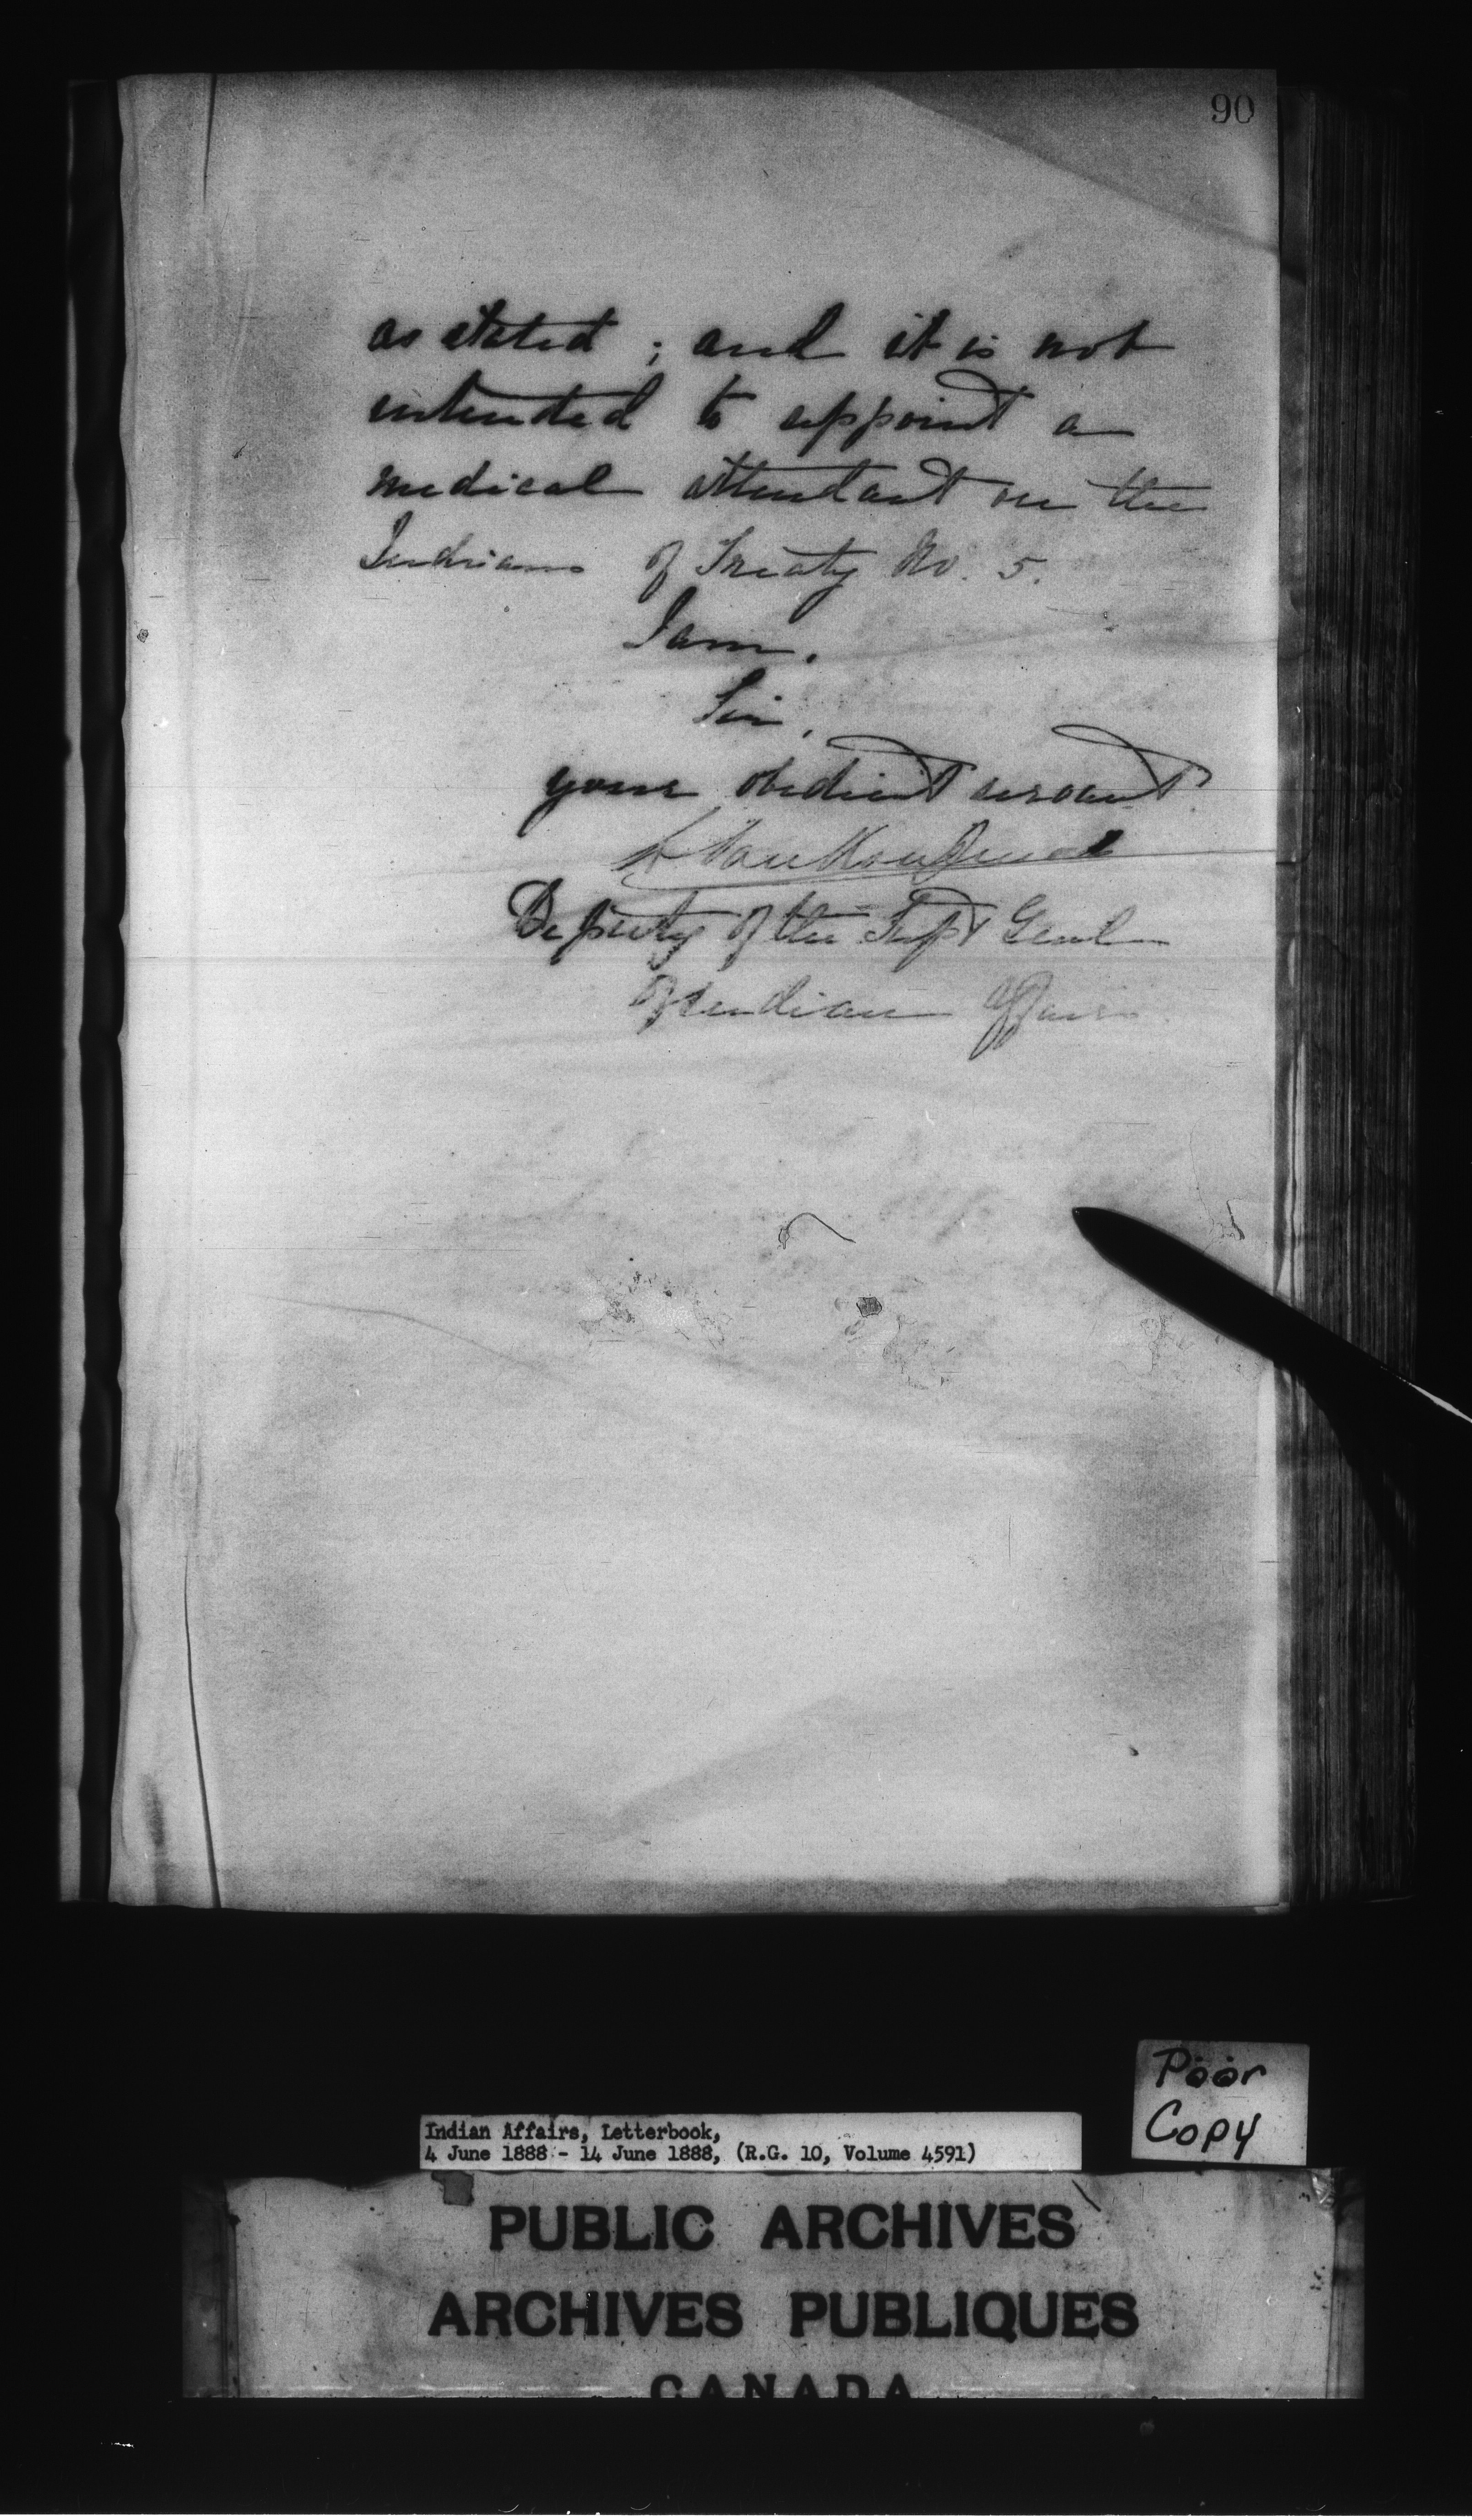 90
as stated ; and it is not
intended to appoint a
medical attendant on the
Indians of Treaty No. 5.
I am,
Sir,
your obedient servant
L. VanKoughnet
Deputy of the Supt Genl
of Indian Affairs
Poor
Copy
Indian Affairs, Letterbook,
4 June 1888 - 14 June 1888, (R.G. 10, Volume 4591)
PUBLIC ARCHIVES
ARCHIVES PUBLIQUES
CANADA